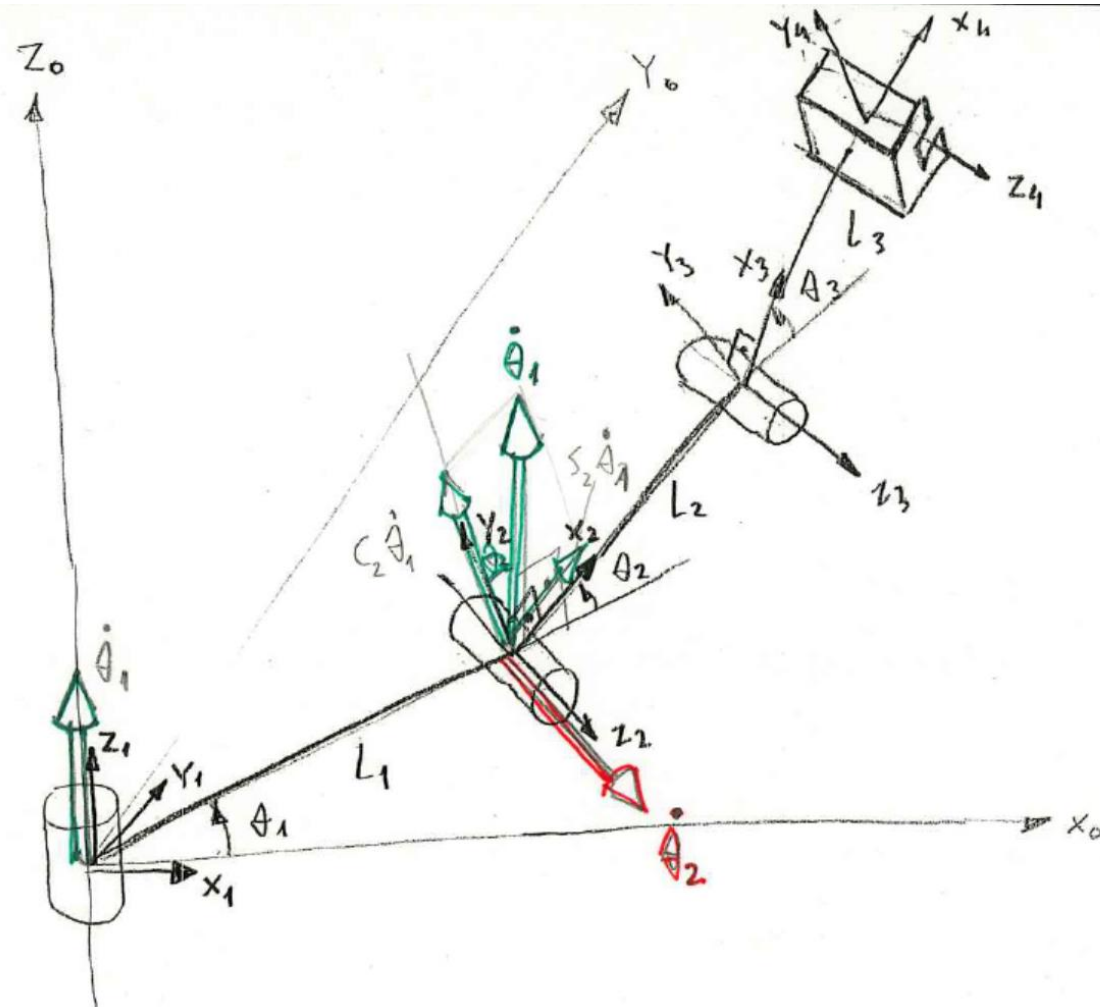 Z₀
Y₀
Y₄
X₄
Z₄
L₃
Y₃
X₃
θ₃
Z₃
θ̇₁
S₂θ̇₁
L₂
C₂θ̇₁
Y₂
θ₂
X₂
θ₂
Z₂
θ̇₁
Z₁
Y₁
L₁
θ₁
X₁
X₀
θ̇₂